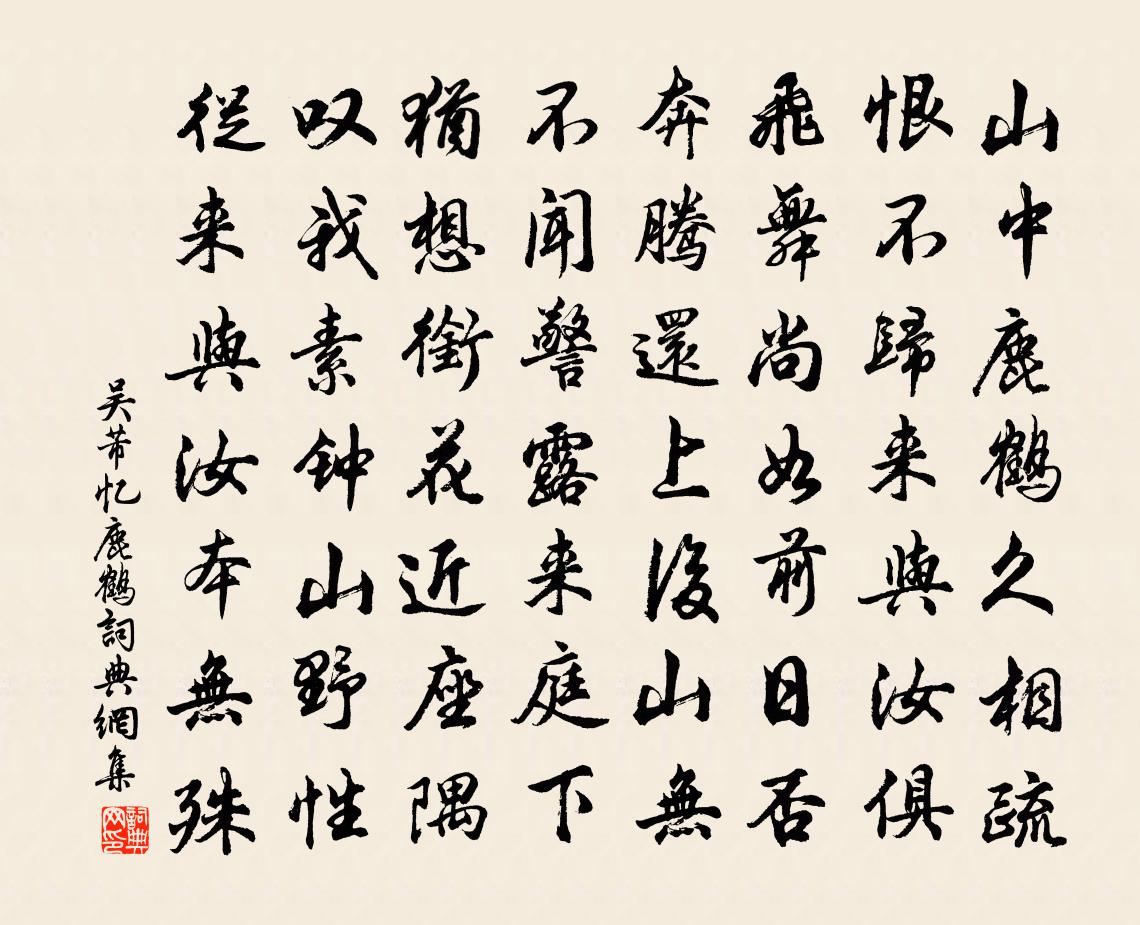 山中鹿鶴久相疏
恨不歸来與汝俱
飛舞尚如前日否
奔騰還上後山無
不闻警露来庭下
猶想銜花近座隅
叹我素钟山野性
従来與汝本無殊
吴芾忆鹿鶴詞典網集
詞典网印